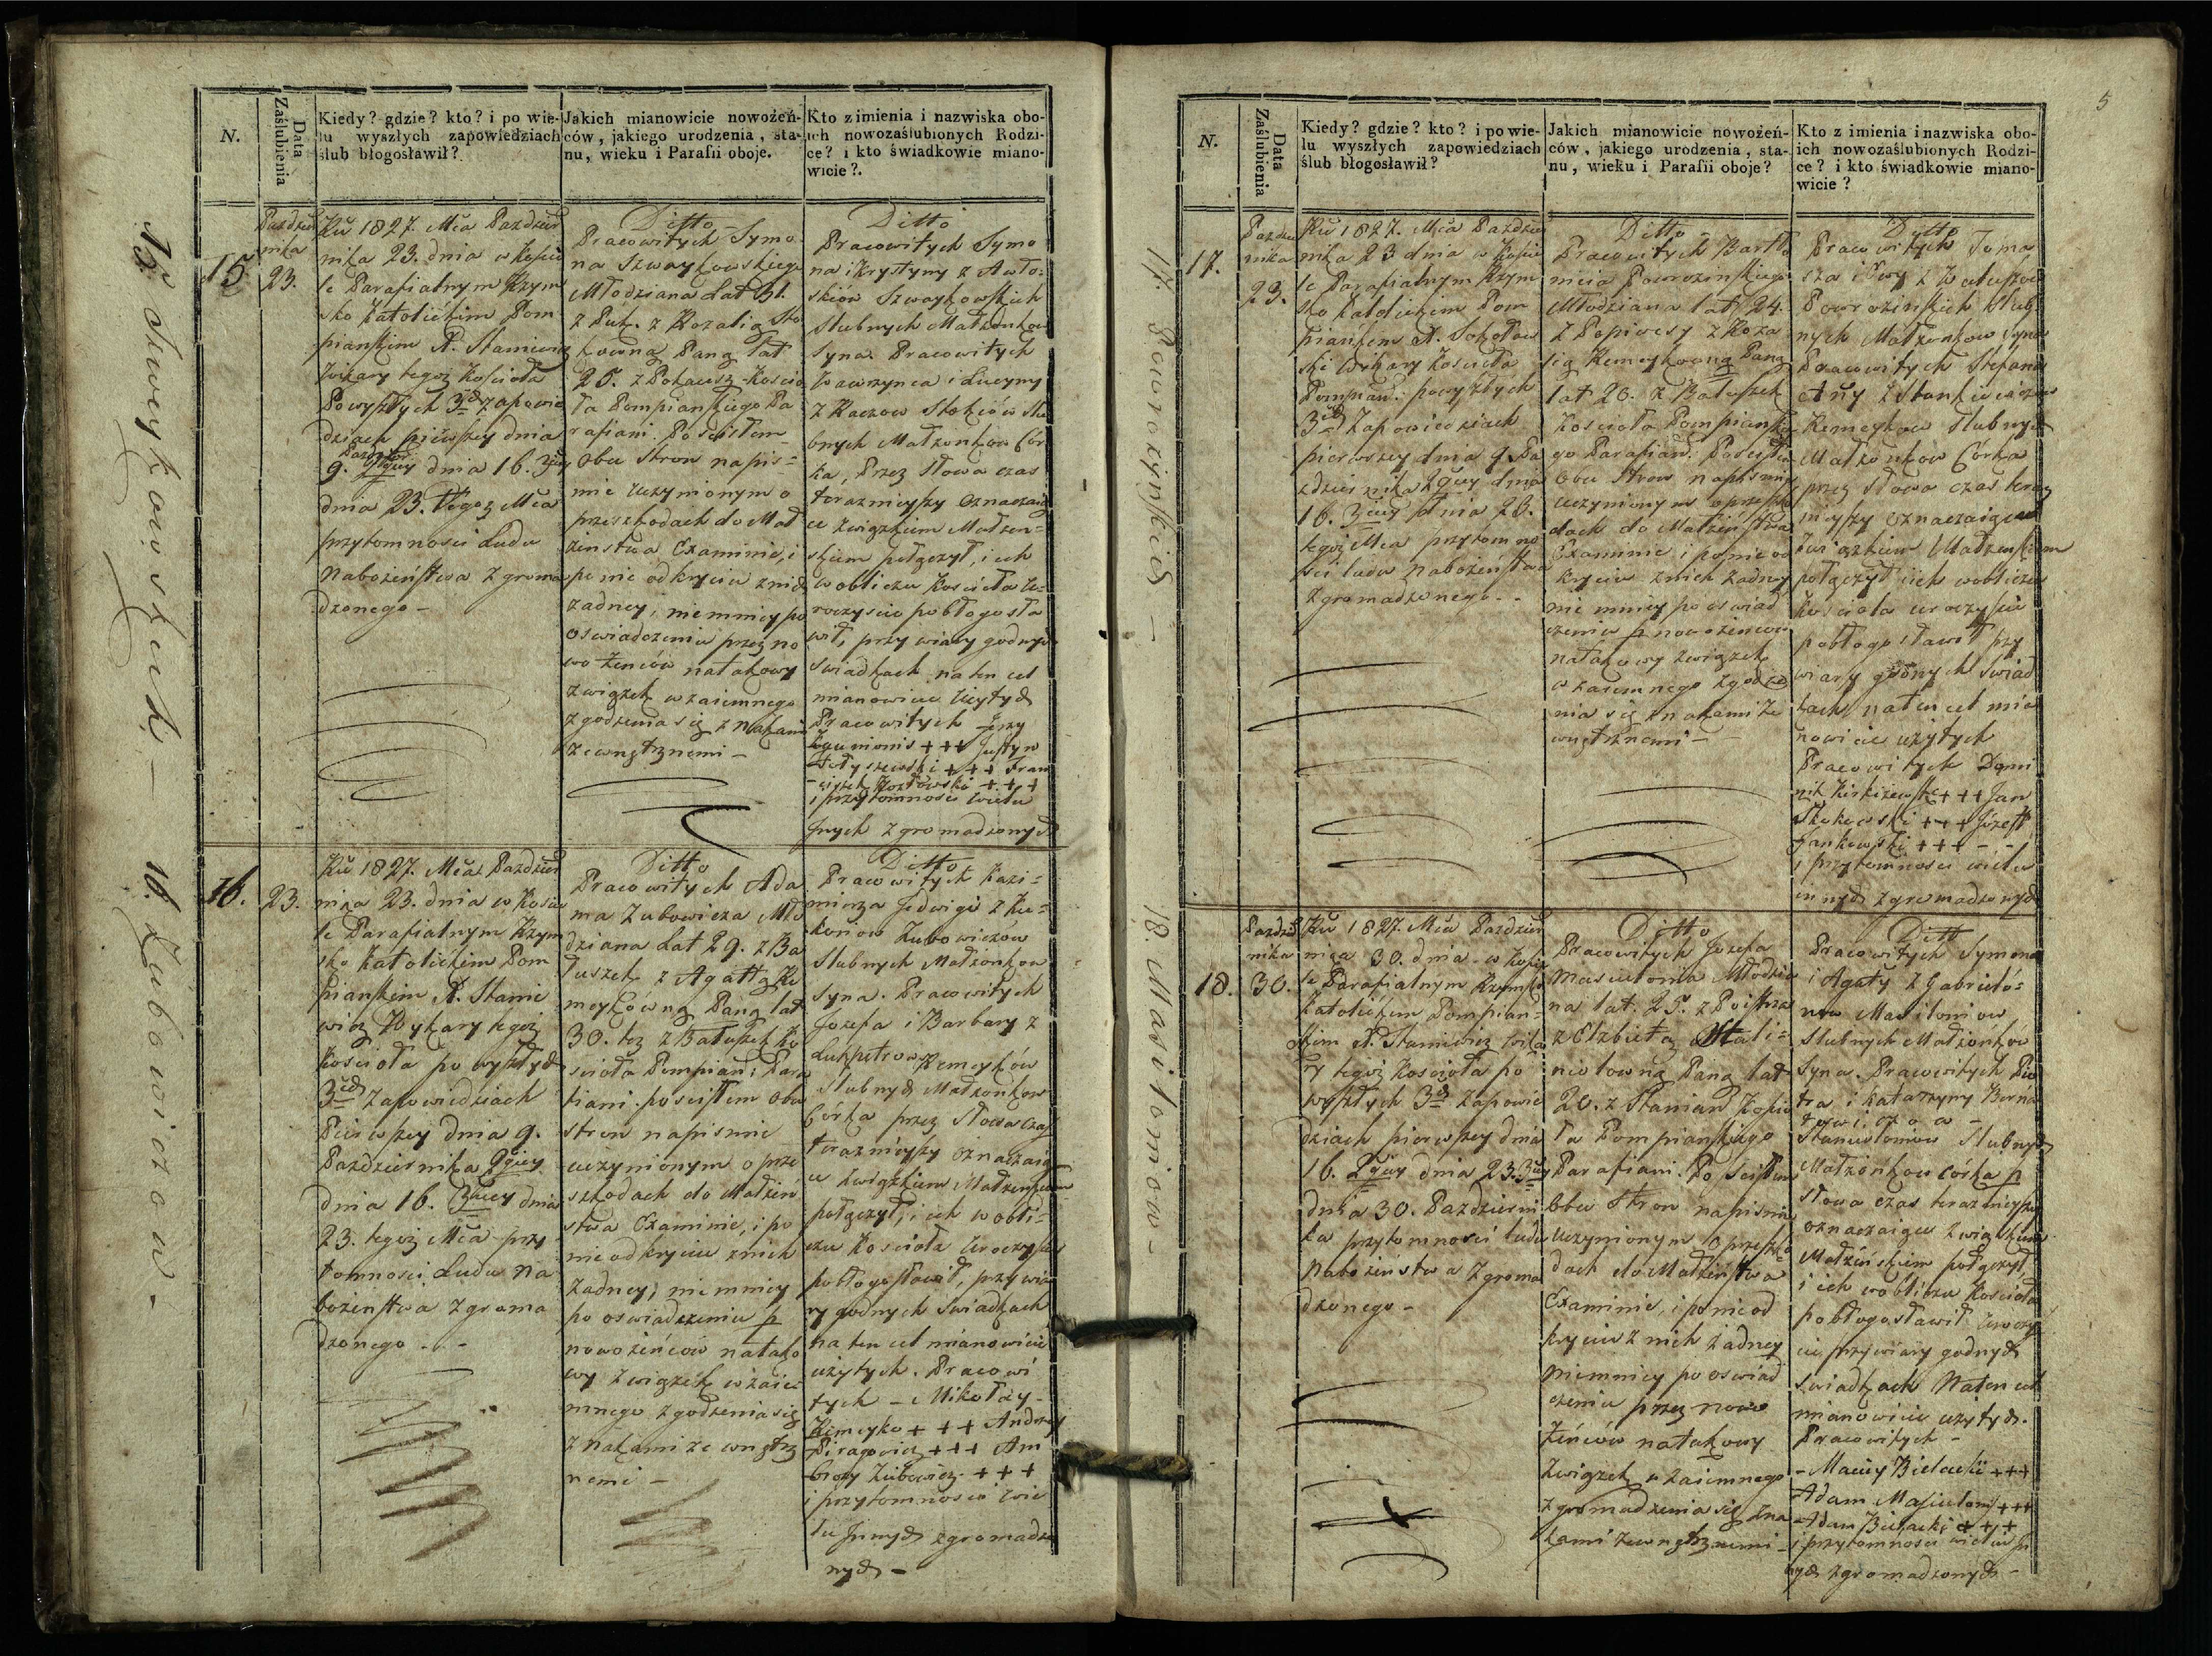 N.
Data
Zaślubienia
Kiedy? gdzie? kto? i po wie-
lu wyszłych zapowiedziach
ślub błogosławił?
Jakich mianowicie nowożeń-
ców, jakiego urodzenia, sta-
nu, wieku i Parafii oboje.
Kto z imienia i nazwiska obo-
ich nowozaślubionych Rodzi-
ce? i kto świadkowie miano-
wicie?.
15 Szweykowskich –
16. Zubowiczow –
15
Pazdzier
nika
23.
Ru 1827. Mca Pazdzier
nika 23. dnia w Koscie
le Parafialnym Rzym
sko Katolickim Pom
pianskim X. Staniewicz
Wikary tegoz Kościoła
Po wyszłych 3ch zapowie
dziach pierwszey dnia
9. Pazdzier 2giey dnia 16. 3ciey
dnia 23. Tegoz Mca
przytomnosci Ludu
Nabożeństwa zgroma
dzonego –
Ditto
Pracowitych Symo
na Szwaykowskiego
Młodziana Lat 31.
z Rozalią Sto
kowną Panną lat
25. z Koscio
ła Pompianskiego Pa
rafiani. Po scisłem
obu stron napis=
mie uczynionym o
przeszkodach do Mał
żenstwa Examinie, i
po nie odkryciu z nich
zadney, niemniey po
oswiadczeniu przez no
wo żenców natakowy
związek wzaiemnego
zgodzenia się znakami
zewnętrznemi –
Ditto
Pracowitych Symo
na i Krystyny z
Szwaykowskich
Slubnych Małżonkow
Syna. Pracowitych
Wawrzynca i Lucyny
z Stokiow Slu
bnych Małżonkow Cór
ka, Przez Słowa czas
terazmieyszy oznaczaią
ce związkiem Małżen=
skiem połączył, i ich
w obliczu Kosciola U=
roczyscie pobłogosła
wił, przy wiary godnych
Swiadkach na ten cel
mianowicie użytych
Pracowitych Jerzy
+++ Justyn
+++ Fran
ciszek Kozłowski +++
i przytomnosci wielu
Jnych zgromadzonych
16.
23.
Ru 1827. Mca Pazdzier
nika 23. dnia w Koscie
le Parafialnym Rzym
sko Katolickim Pom
pianskim X. Stanie
wicz Wykary tegoż
Kościoła po wyszłych
3ch Zapowiedziach
Pierwszey dnia 9.
Pazdziernika 2giey
dnia 16. 3ciey dnia
23. tegoż Mca przy
tomnosci Ludu na
bożenstwa zgroma
dzonego –
Ditto
Pracowitych Ada
ma Zubowicza Mło
dziana Lat 29. z Ba
łuszek z Agattą Re
meykowną Panną lat
30. tez z Bałuszek Ko
scioła Pompian: Para
fiani po scisłem obu
stron napismie
uczynionym o prze
szkodach do Małżeń
stwa Examinie, i po
nie odkryciu z nich
żadney, niemniey
po oswiadczeniu p
nowożeńców natako
wy związek wzaie
mnego zgodzenia się
znakami ze wnętrz
nemi –
Ditto
Pracowitych Kazi=
mierza Jedwigi z
Zubowiczów
Slubnych Małżonkow
Syna. Pracowitych
Jozefa i Barbary z
Remeyków
Slubnych Małżonkow
Córka przez Słowa czas
terazmieyszy oznaczaią
ce związkiem Małżenskiem
połączył, i ich w obli=
czu Kosciola Uroczyscie
pobłogosławił, przy wia
ry godnych Swiadkach
na ten cel mianowicie
użytych. Pracowi
tych – Mikołay –
Remeyko +++ Andrzey
Piragowicz +++ Am
brozy Zubowicz +++
i przytomnosci wie
lu Jnnych zgromadzo
nych –
5
N.
Data
Zaślubienia
Kiedy? gdzie? kto? i po wie-
lu wyszłych zapowiedziach
ślub błogosławił?
Jakich mianowicie nowożeń-
ców, jakiego urodzenia, sta-
nu, wieku i Parafii oboje?
Kto z imienia i nazwiska obo-
ich nowozaślubionych Rodzi-
ce? i kto świadkowie miano-
wicie?
17. Powrozinskich –
18. Masitomiow –
17.
Pazdzier
nika
23.
Ru 1827. Mca Pazdzier
nika 23 dnia w Koscie
le Parafialnym Rzym
sko Katolickim Pom
piańskim X. Sokołow
ski Wikary Kosciola
Pompian: po wyszłych
3ch Zapowiedziach
pierwszey dnia 9. Pa
zdziernika 2giey dnia
16. 3ciey dnia 23.
tegoż Mca przytomno
sci ludu Nabożeństwa
zgromadzonego –
Ditto
Pracowitych Bartło
mieia Powrozinskiego
Młodziana lat 24.
z Popiwesy z Roza
lią Remeykowną Panną
lat 20. z Bałuszek
Kosciola Pompianskie
go Parafian. Po scisłem
obu stron napismie
uczynionym o przeszko
dach do Małżeństwa
Examinie i po nie od
kryciu znich żadney
nie mniey po oswiad
czeniu p nowożencow
natakowy związek
wzaiemnego zgodze
nia się znakami Ze
wnętrznemi –
Ditto
Pracowitych Toma
sza i Ewy z
Powrozinskich Slub
nych Małżonkow Syna
Pracowitych Stefana
Anny z Stankiewiczow
Remeykow Slubnych
Małżonkow Córka
przez słowa czas teraz
mieyszy oznaczaiące
Związkiem Małżenskiem
połączył i ich w obliczu
Kosciola uroczyscie
pobłogosławił przy
wiary godnych Swiad
kach na ten cel mia
nowicie użytych
Pracowitych Domi
nik +++ Jan
+++ Józeff
Jankowski +++ –
i przytomnosci wielu
innych zgromadzonych
18.
Pazdzier
nika
30.
Ru 1827. Mca Pazdzier
nika 30. dnia w Koscie
le Parafialnym Rzymsko
Katolickim Pompian=
skim X. Staniewicz Wika
ry tegoż Kosciola po
wyszłych 3ch Zapowie
dziach pierwszey dnia
16. 2giey dnia 23. 3ciey
dnia 30. Pazdzierni
ka przytomnosci ludu
Nabożenstwa zgroma
dzonego –
Ditto
Pracowitych Jozefa
Młodzia
na lat. 25. z
z Elżbietą
Panną lat
20. z Stanian Koscio
ła Pompianskiego
Parafiani. Po scisłem
obu stron napismie
uczynionym o przeszko
dach do Małżeństwa
Examinie, i po nieod
kryciu z nich żadney
niemniey po oswiad
czeniu przez nowo
żeńców natakowy
Związek wzaiemnego
zgromadzenia się zna
kami zewnętrznemi –
Ditto
Pracowitych Symona
i Agaty z Gabrieló=
now Masitomiow
Slubnych Małżonków
Syna. Pracowitych Pio
tra i Katarzyny
Slubnych
Małżonkow córka p
słowa czas terazmieyszy
oznaczaiące związkiem
Małżeńskiem połączył
i ich w obliczu Kosciola
pobłogosławił Uroczys
cie przy wiary godnych
Swiadkach Na ten cel
mianowicie użytych.
Pracowitych –
– Maciey Bielacki +++
Adam +++
Adam Bielacki +++
i przytomnosci wielu in
nych zgromadzonych –